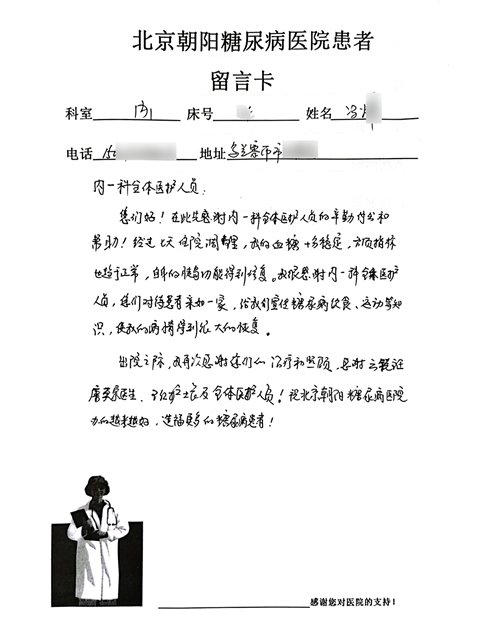 北京朝阳糖尿病医院患者
留言卡
科室 内1 床号 姓名 冯
电话 15 地址 乌兰察布市
内一科全体医护人员:
您们好!在此先感谢内一科全体医护人员的辛勤付出和
帮助!经过七天住院调理,我的血糖十分稳定,各项指标
也趋于正常,自身的胰岛功能得到修复。我很感谢内一科全体医护
人员,您们对待患者亲如一家,给我们宣传糖尿病饮食、运动等知
识,使我的病情得到很大的恢复。
出院之际,我再次感谢您们的治疗和照顾,感谢
医生、护士长及全体医护人员!祝北京朝阳糖尿病医院
办的越来越好,造福更多的糖尿病患者!
感谢您对医院的支持!